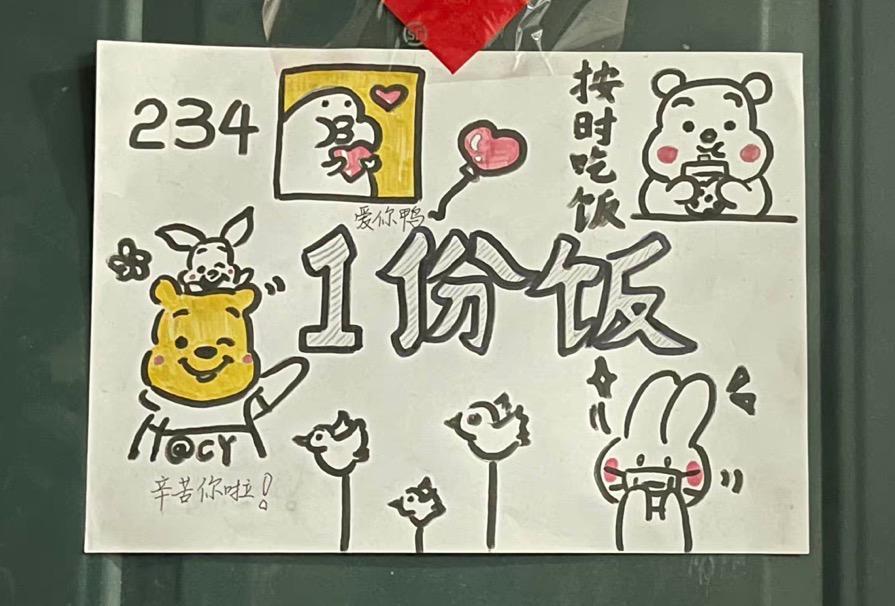 234
按时吃饭
爱你鸭
1份饭
@CY
辛苦你啦!